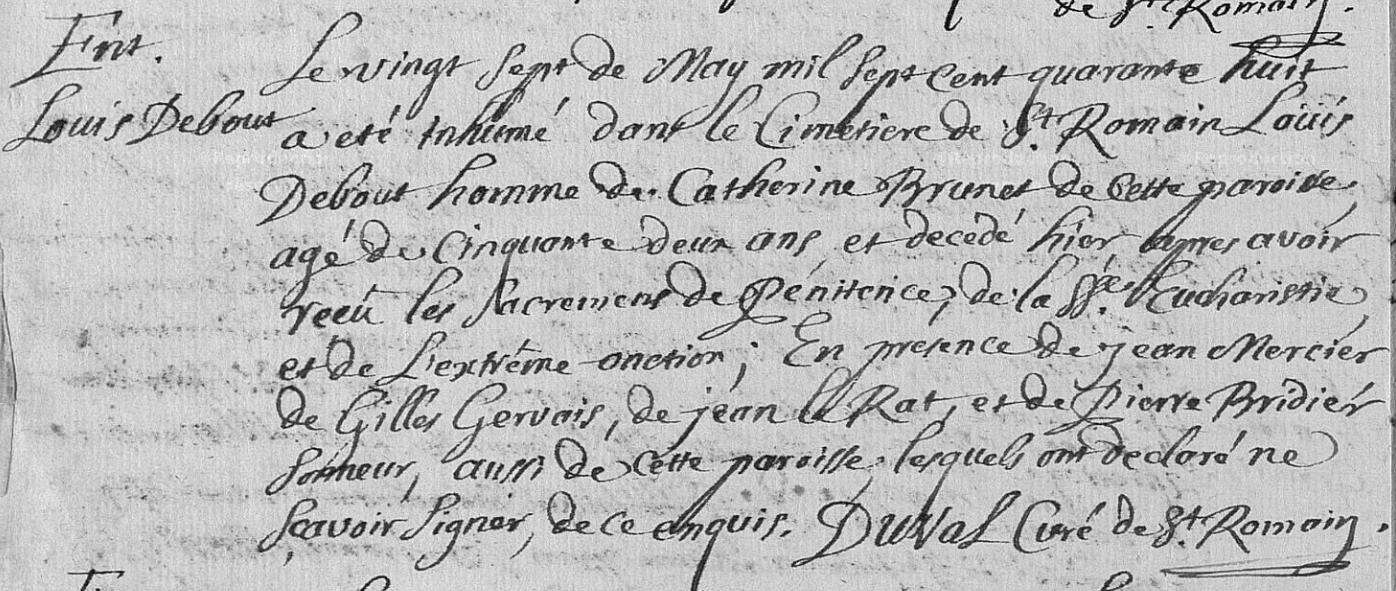 de St. Romain.
Ent.
Louis Debout
Le vingt sept de May mil sept cent quarante huit
a eté inhumé dans le Cimetiere de St. Romain Loüis
Debout homme de Catherine Brunet de cette paroisse,
agé de Cinquante deux ans, et decedé hier apres avoir
reçû les sacremens de Pénitence, de la Ste. Eucharistie,
et de L'extrême-onction; En presence de jean Mercier
de Gilles Gervais, de jean le Rat, et de Pierre Bridier
Sonneur, aussi de cette paroisse, lesquels ont declaré ne
sçavoir signer, de ce enquis. Duval Curé de St. Romain.